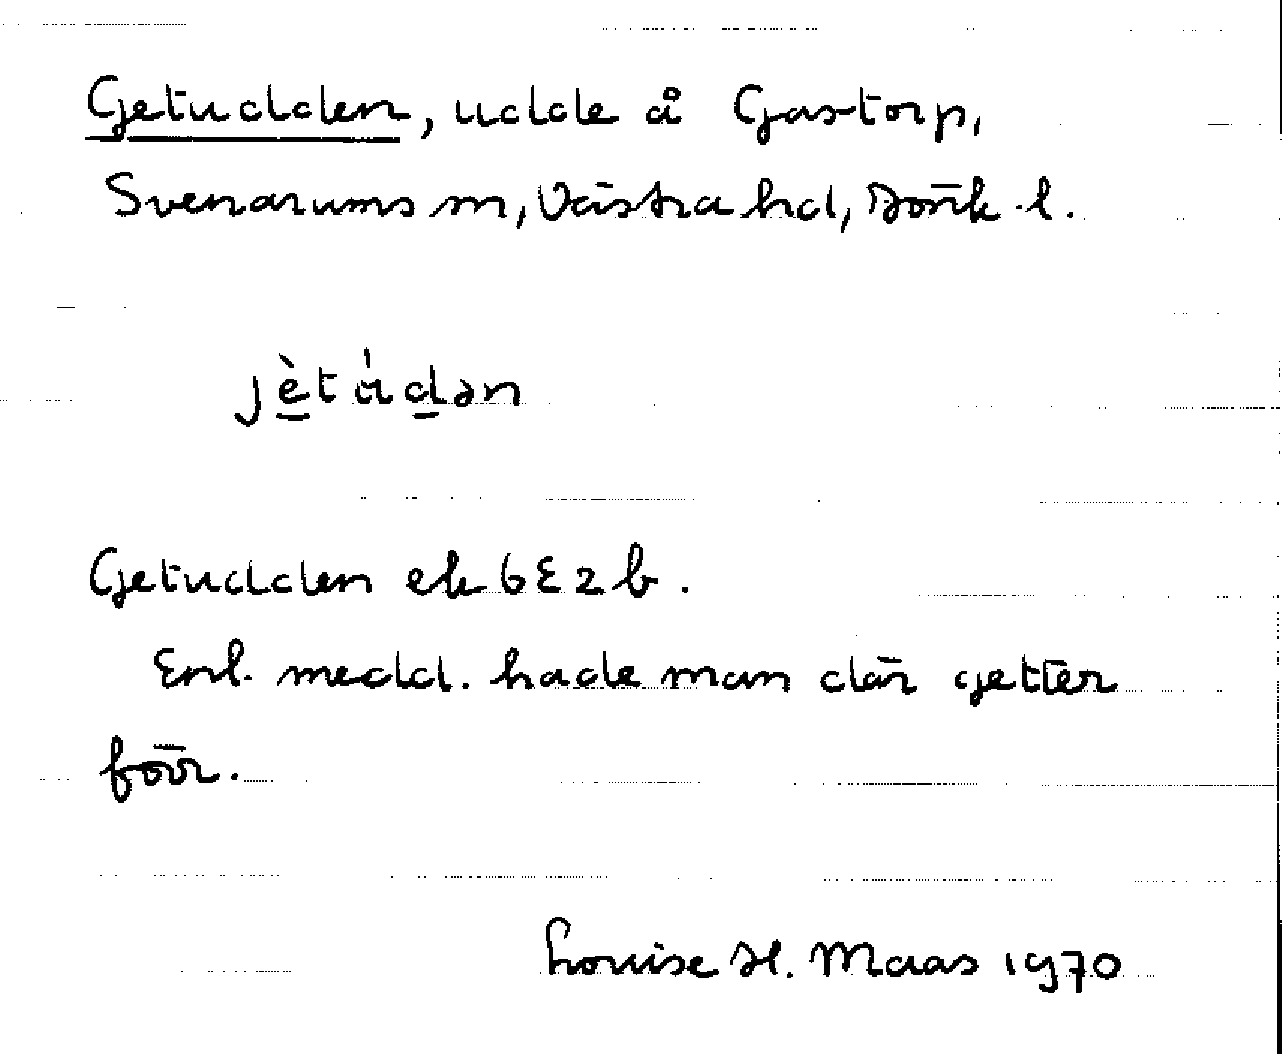 Getudden, udde å Gastorp,
Svenarums sn, Västra hd, Jönk. l.
jètádən
Getudden ek 6E2b.
Enl. medd. hade man där getter
förr.
Louise H. Maas 1970